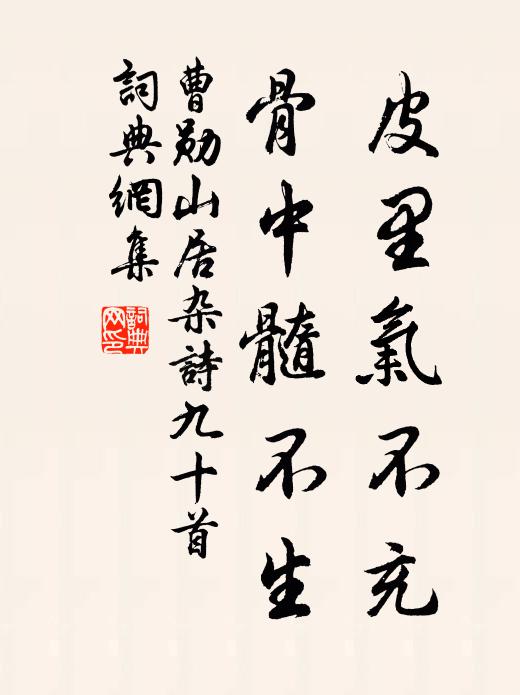 皮里氣不充
骨中髓不生
曹勛山居杂詩九十首
詞典網集
詞典网印